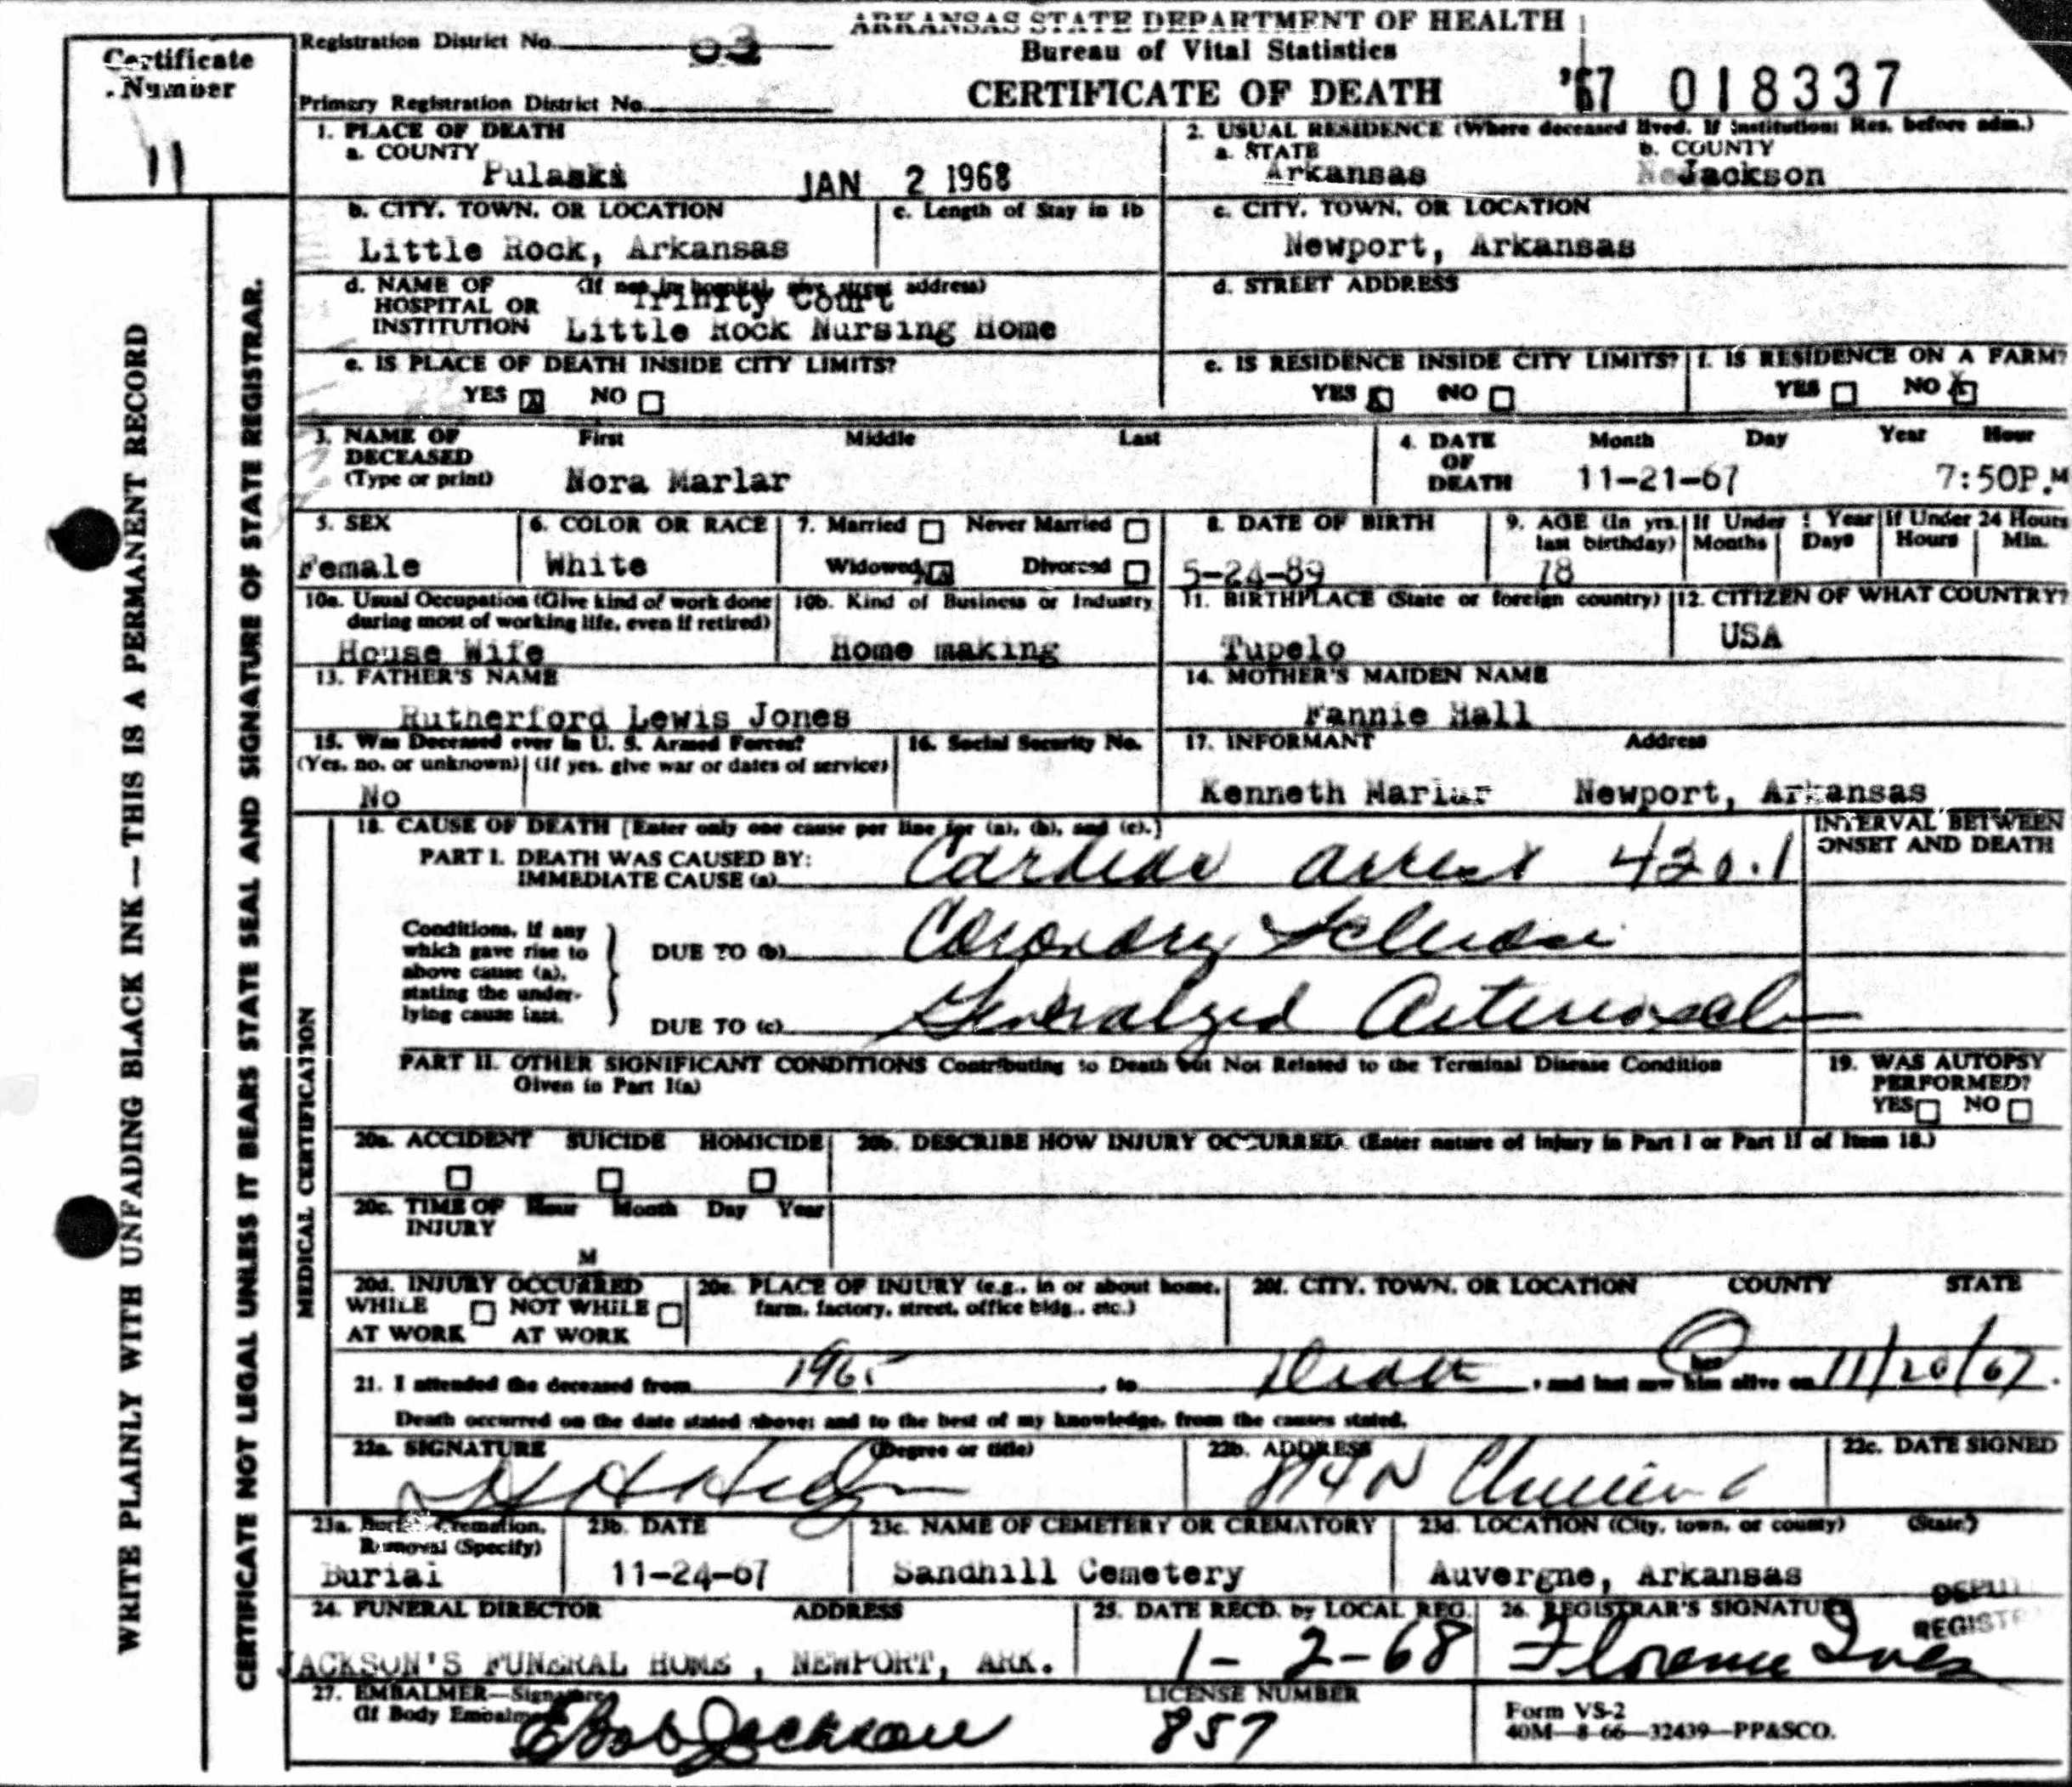 ARKANSAS STATE DEPARTMENT OF HEALTH
Bureau of Vital Statistics
CERTIFICATE OF DEATH
'67 018337
Certificate
Number
11
Registration District No.
Primary Registration District No.
1. PLACE OF DEATH
a. COUNTY
Pulaski
JAN 2 1968
2. USUAL RESIDENCE (Where deceased lived. If institution: Res. before adm.)
a. STATE b. COUNTY
Arkansas Jackson
b. CITY, TOWN, OR LOCATION c. Length of Stay in 1b
Little Rock, Arkansas
c. CITY, TOWN, OR LOCATION
Newport, Arkansas
d. NAME OF HOSPITAL OR INSTITUTION (If not in hospital, give street address)
Trinity Court
Little Rock Nursing Home
d. STREET ADDRESS
e. IS PLACE OF DEATH INSIDE CITY LIMITS?
YES X NO
e. IS RESIDENCE INSIDE CITY LIMITS? f. IS RESIDENCE ON A FARM?
YES X NO YES NO X
3. NAME OF DECEASED (Type or print) First Middle Last
Nora Marlar
4. DATE OF DEATH Month Day Year Hour
11-21-67 7:50P.M
5. SEX
Female
6. COLOR OR RACE
White
7. Married Never Married
Widowed X Divorced
8. DATE OF BIRTH
5-24-89
9. AGE (In yrs. last birthday) If Under 1 Year Months Days If Under 24 Hours Hours Min.
78
10a. Usual Occupation (Give kind of work done during most of working life, even if retired)
House Wife
10b. Kind of Business or Industry
Home making
11. BIRTHPLACE (State or foreign country)
Tupelo
12. CITIZEN OF WHAT COUNTRY?
USA
13. FATHER'S NAME
Rutherford Lewis Jones
14. MOTHER'S MAIDEN NAME
Fannie Hall
15. Was Deceased ever in U. S. Armed Forces?
(Yes, no, or unknown) (If yes, give war or dates of service)
No
16. Social Security No.
17. INFORMANT Address
Kenneth Marlar Newport, Arkansas
18. CAUSE OF DEATH [Enter only one cause per line for (a), (b), and (c).]
INTERVAL BETWEEN
ONSET AND DEATH
PART I. DEATH WAS CAUSED BY:
IMMEDIATE CAUSE (a) Cardiac arrest 420.1
Conditions, if any
which gave rise to
above cause (a),
stating the under-
lying cause last.
DUE TO (b) Coronary
DUE TO (c) Generalized
PART II. OTHER SIGNIFICANT CONDITIONS Contributing to Death but Not Related to the Terminal Disease Condition
Given in Part I(a)
19. WAS AUTOPSY
PERFORMED?
YES NO
20a. ACCIDENT SUICIDE HOMICIDE
20b. DESCRIBE HOW INJURY OCCURRED. (Enter nature of injury in Part I or Part II of Item 18.)
20c. TIME OF INJURY Hour Month Day Year
M
20d. INJURY OCCURRED
WHILE AT WORK NOT WHILE AT WORK
20e. PLACE OF INJURY (e.g., in or about home,
farm, factory, street, office bldg., etc.)
20f. CITY, TOWN, OR LOCATION COUNTY STATE
21. I attended the deceased from 1965 , to Death , and last saw him her alive on 11/20/67.
Death occurred on the date stated above; and to the best of my knowledge, from the causes stated.
22a. SIGNATURE (Degree or title)
22b. ADDRESS
22c. DATE SIGNED
23a. Burial, Cremation,
Removal (Specify)
Burial
23b. DATE
11-24-67
23c. NAME OF CEMETERY OR CREMATORY
Sandhill Cemetery
23d. LOCATION (City, town, or county) (State)
Auvergne, Arkansas
24. FUNERAL DIRECTOR ADDRESS
JACKSON'S FUNERAL HOME , NEWPORT, ARK.
25. DATE RECD. by LOCAL REG.
1-2-68
26. REGISTRAR'S SIGNATURE
Florence
27. EMBALMER—Signature
(If Body Embalmed)
E Bob Jackson
LICENSE NUMBER
857
Form VS-2
40M—8-66—32439—PP&SCO.
MEDICAL CERTIFICATION
CERTIFICATE NOT LEGAL UNLESS IT BEARS STATE SEAL AND SIGNATURE OF STATE REGISTRAR.
WRITE PLAINLY WITH UNFADING BLACK INK—THIS IS A PERMANENT RECORD